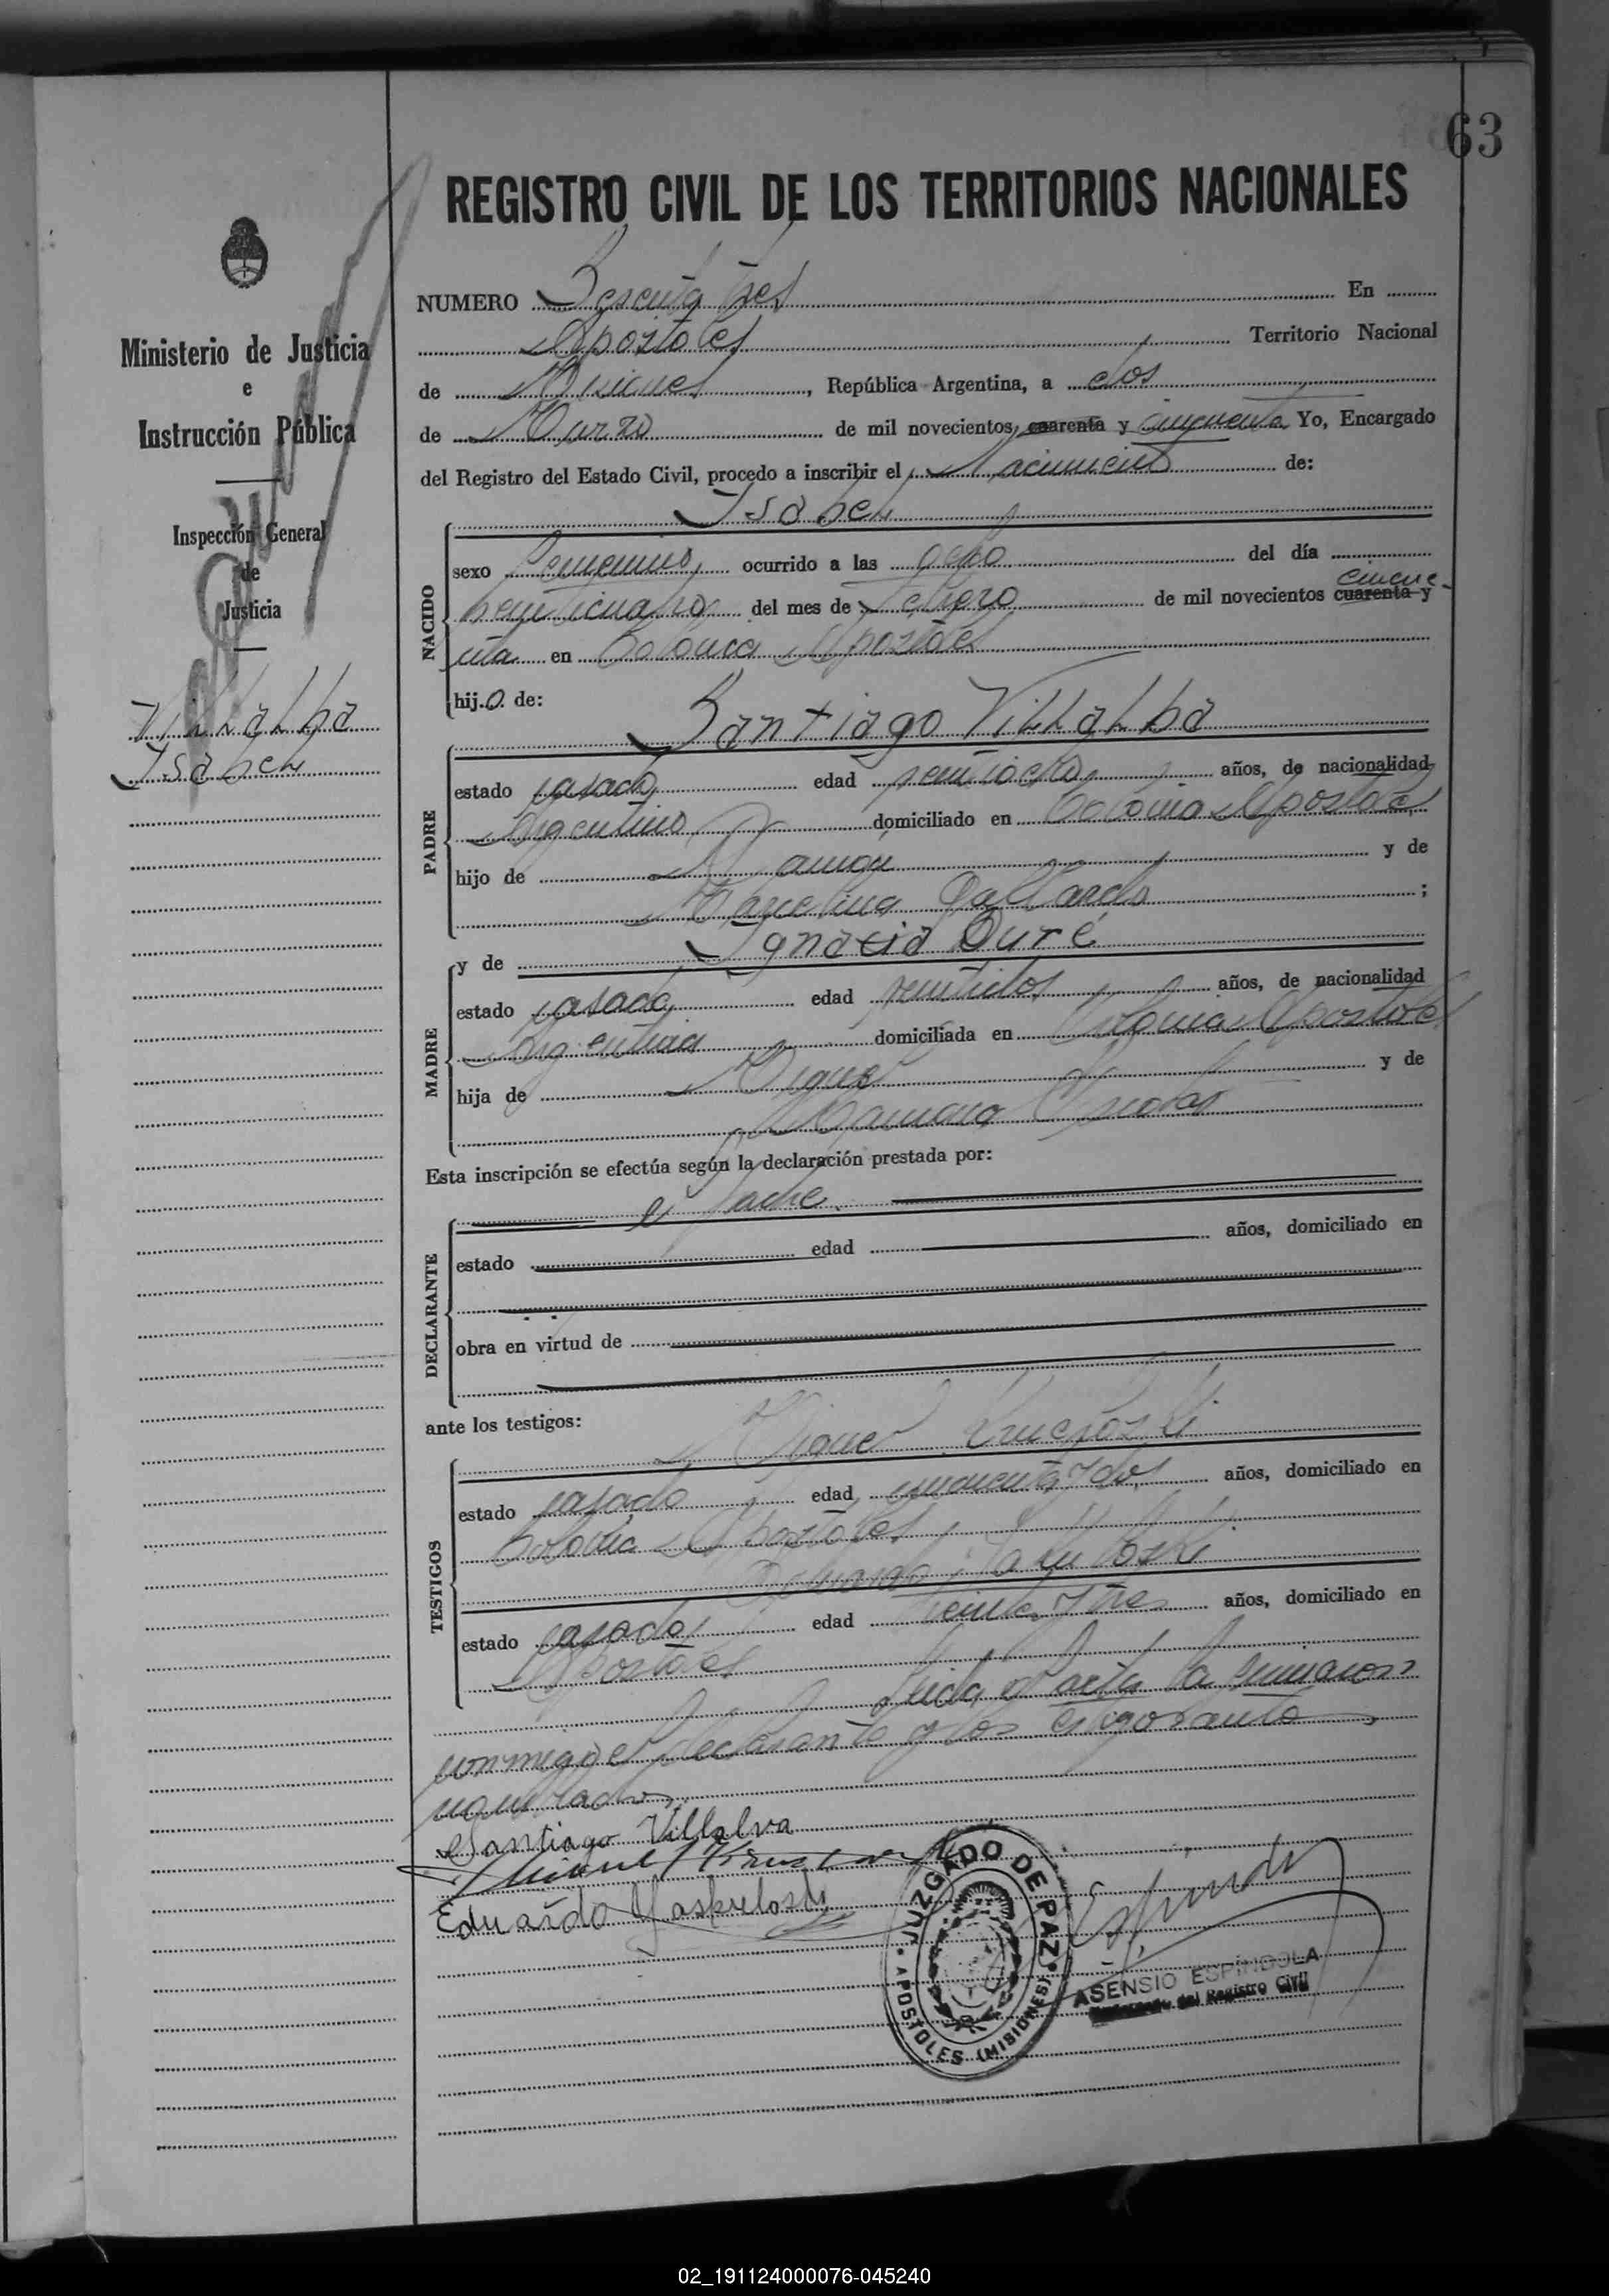 63
REGISTRO CIVIL DE LOS TERRITORIOS NACIONALES
Ministerio de Justicia
e
Instrucción Pública
Inspección General
de
Justicia
Villalba
Isabel
NUMERO Sesenta tres En
Apostoles Territorio Nacional
de Misiones, República Argentina, a dos
de Marzo de mil novecientos cuarenta y cincuenta Yo, Encargado
del Registro del Estado Civil, procedo a inscribir el Nacimiento de:
Isabel
NACIDO
sexo femenino, ocurrido a las ocho del día
veinticuatro del mes de Febrero de mil novecientos cuarenta y cincue-
nta en Colonia Apostoles
hijo de:
Santiago Villalba
PADRE
estado casado, edad veintiocho, años, de nacionalidad
Argentino domiciliado en Colonia Apostoles,
hijo de Ramón y de
Marcelina Gallardo ;
y de Ignacia Duré
MADRE
estado casada, edad veintidos años, de nacionalidad
Argentina domiciliada en Colonia Apostoles
hija de Miguel y de
Ramona
Esta inscripción se efectúa según la declaración prestada por:
el Padre.
DECLARANTE
estado edad años, domiciliado en
obra en virtud de
ante los testigos:
Miguel
TESTIGOS
estado casado edad cincuenta y dos, años, domiciliado en
Colonia Apostoles y
Eduardo
estado casado, edad treinta y tres años, domiciliado en
Apostoles
Leida el acta la firmaron
conmigo el declarante y los testigos ante
nombrados.
Santiago Villalva
Miguel
Eduardo
JUZGADO DE PAZ
APOSTOLES (MISIONES)
ASENSIO ESPINDOLA
Encargado del Registro Civil
02_191124000076-045240